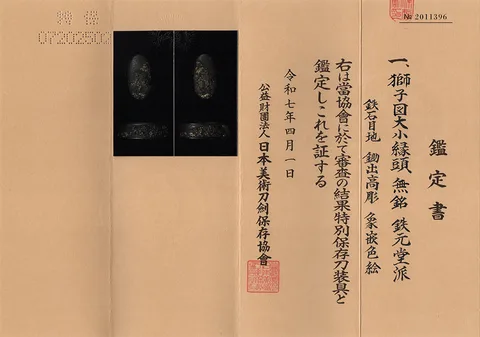 № 2011396
鑑定書
一、獅子図大小縁頭 無銘 鉄元堂派
鉄石目地 鋤出高彫 象嵌色絵
右は當協會に於て審査の結果特別保存刀装具と
鑑定しこれを証する
令和七年四月一日
公益財團法人日本美術刀劍保存協會
07202502